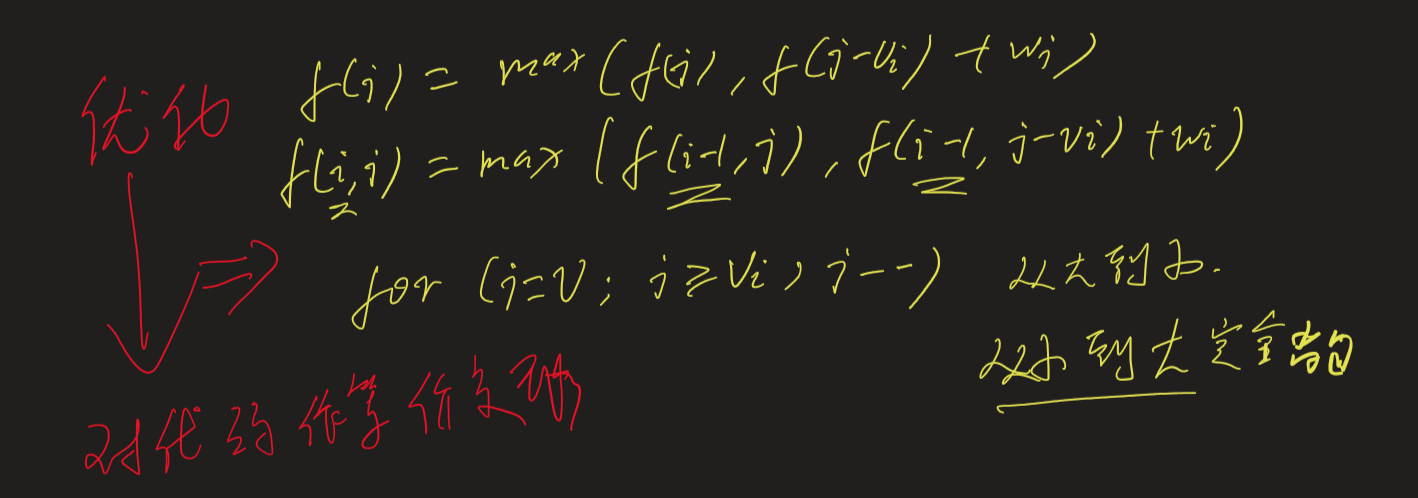 优化
f(j) = max(f(j), f(j-vi) + wi)
f(i,j) = max(f(i-1,j), f(i-1, j-vi) + wi)
for (j=V; j≥vi; j--) 从大到小.
从小到大 完全背包
对代码作等价变形